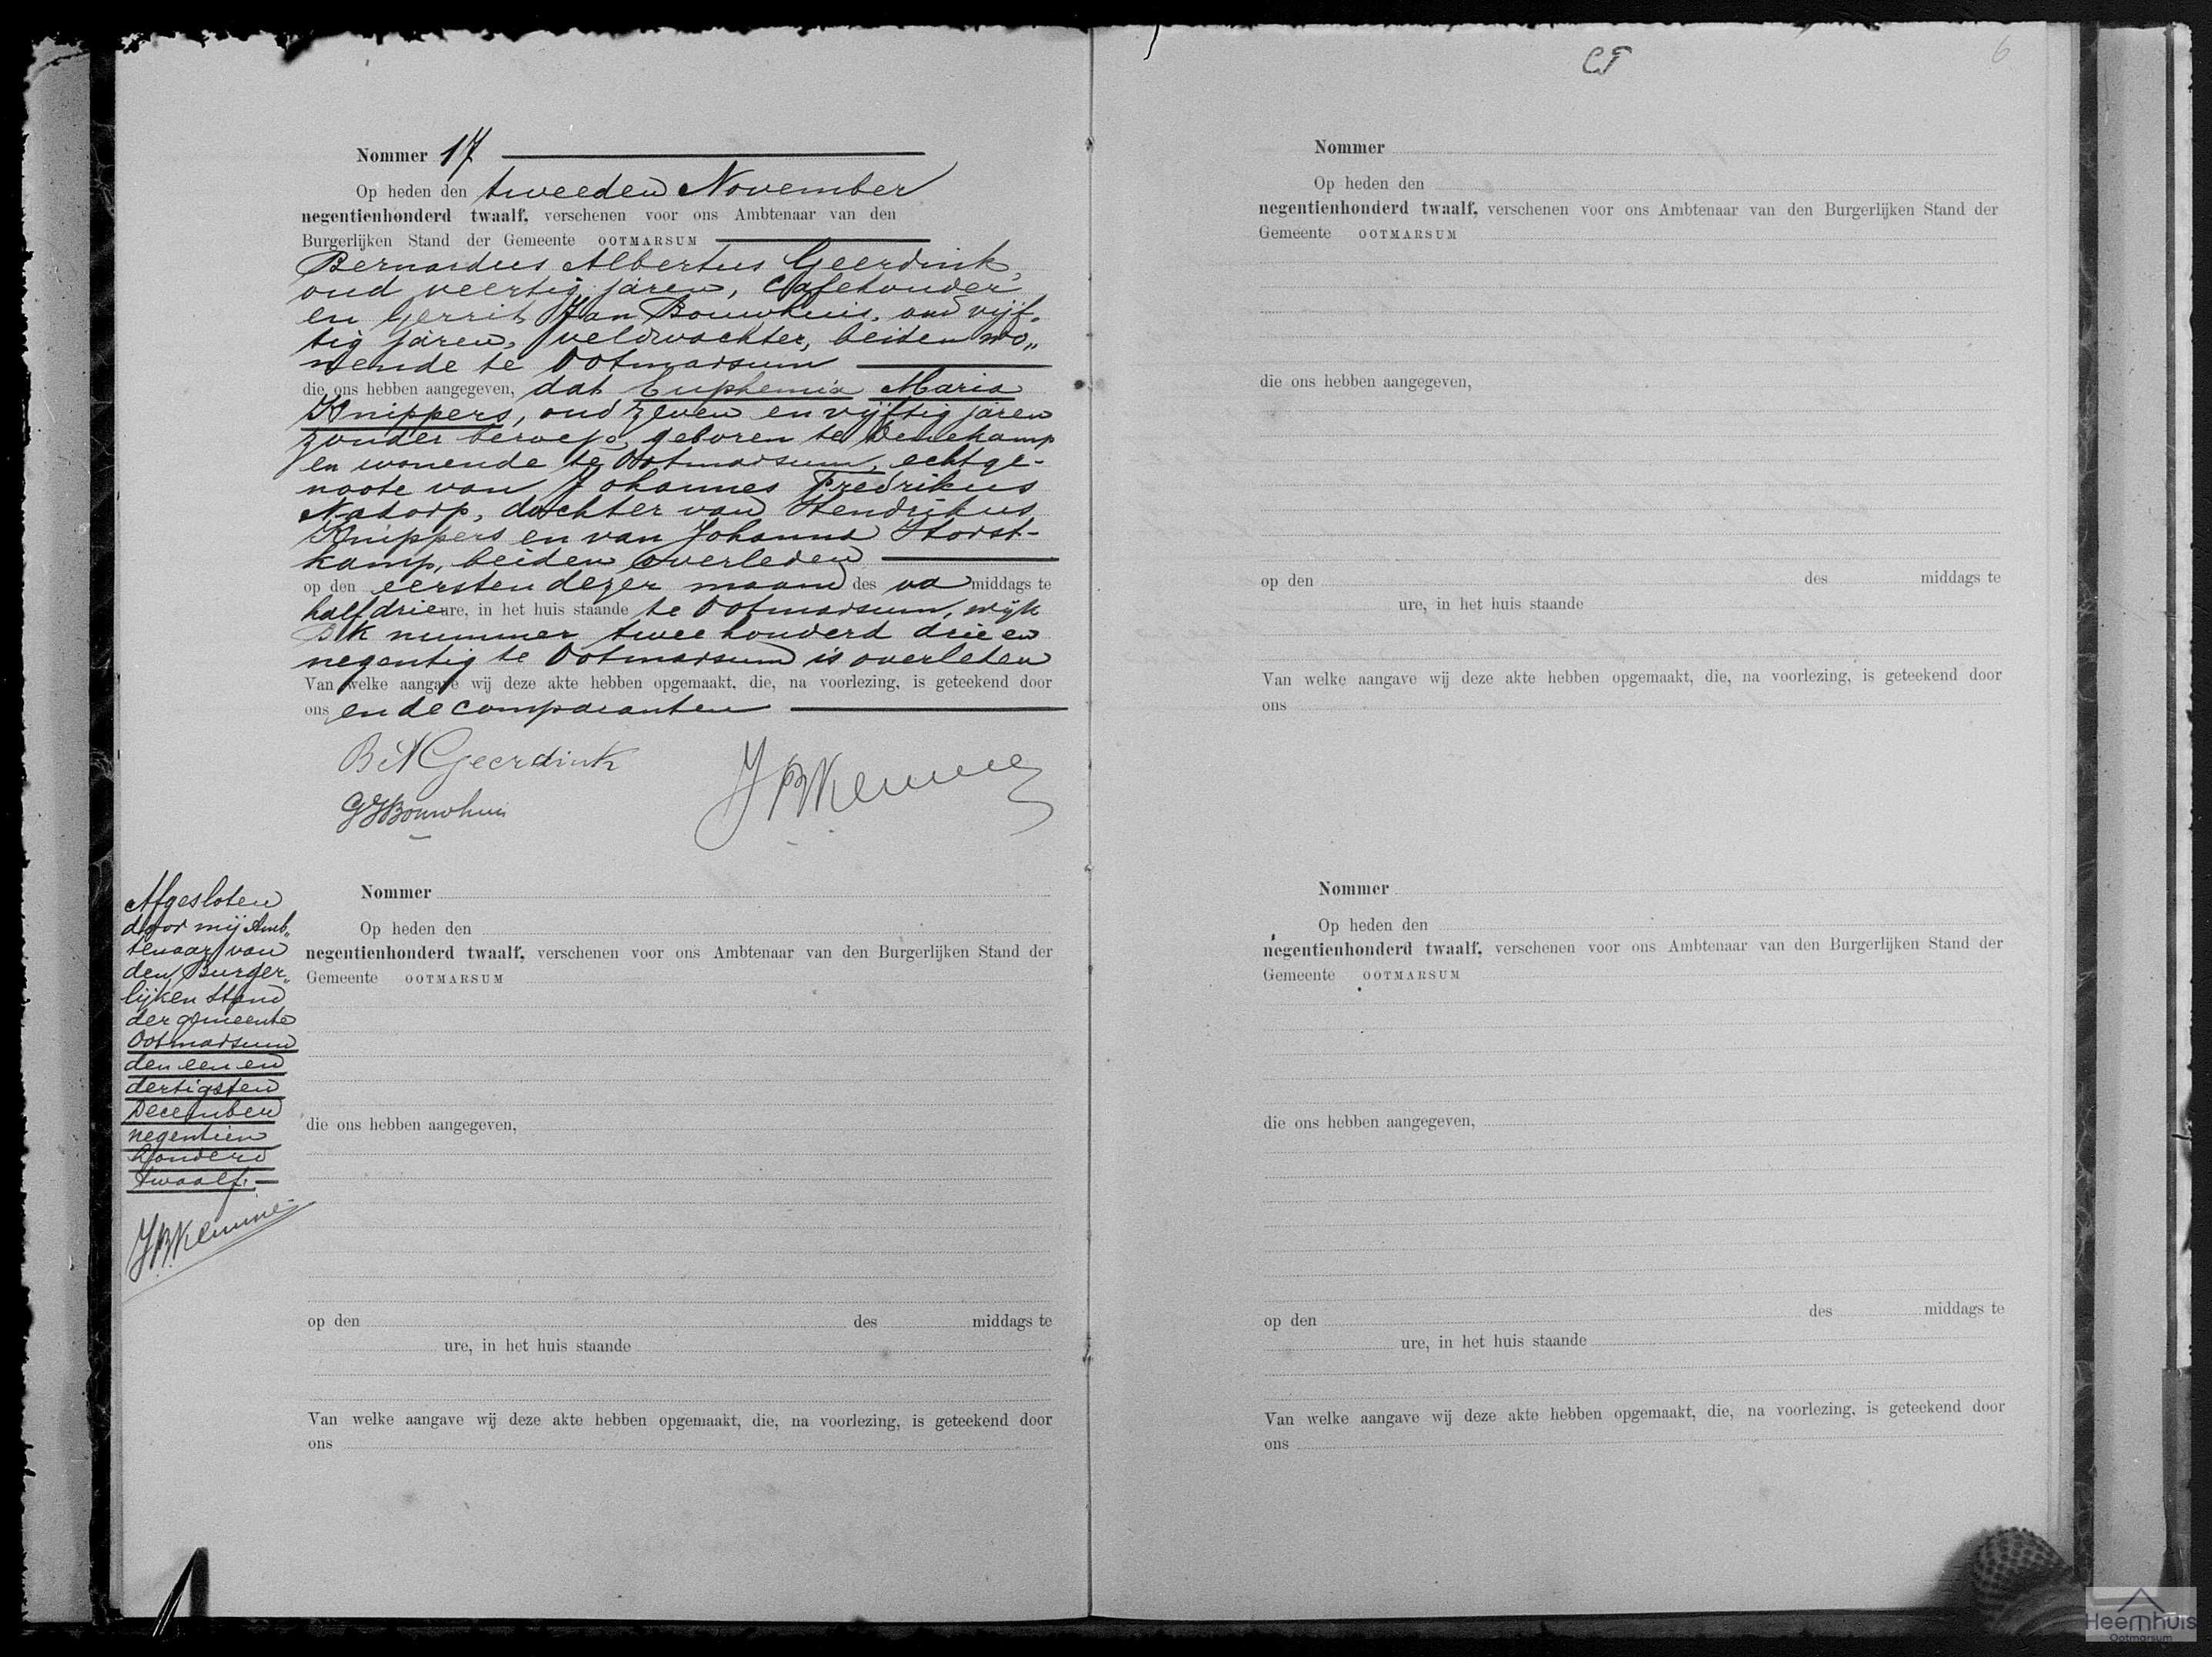 Nommer 17
Op heden den tweeden November
negentienhonderd twaalf, verschenen voor ons Ambtenaar van den
Burgerlijken Stand der Gemeente OOTMARSUM
Bernardus Albertus Geerdink,
oud veertig jaren, Cafehouder
en Gerrit Jan Bouwhuis, oud vijf-
tig jaren, veldwachter, beiden wo„
nende te Ootmarsum
die ons hebben aangegeven, dat Euphemia Maria
Knippers, oud zeven en vijftig jaren
zonder beroep, geboren te Denekamp
en wonende te Ootmarsum, echtge-
noote van Johannes Fredrikus
Natorp, dochter van Hendrikus
Knippers en van Johanna Horst-
kamp, beiden overleden
op den eersten dezer maand des va middags te
half drie ure, in het huis staande te Ootmarsum, wijk
nummer twee honderd drie en
negentig te Ootmarsum is overleden
Van welke aangave wij deze akte hebben opgemaakt, die, na voorlezing, is geteekend door
ons en de comparanten
B A Geerdink
GJBouwhuis
Afgesloten
door mij Amb„
tenaar van
den Burger„
lijken Stand
der gemeente
Ootmarsum
den een en
dertigsten
December
negentien
honderd
twaalf.
Nommer
Op heden den
negentienhonderd twaalf, verschenen voor ons Ambtenaar van den Burgerlijken Stand der
Gemeente OOTMARSUM
die ons hebben aangegeven,
op den des middags te
ure, in het huis staande
Van welke aangave wij deze akte hebben opgemaakt, die, na voorlezing, is geteekend door
ons
6
Nommer
Op heden den
negentienhonderd twaalf, verschenen voor ons Ambtenaar van den Burgerlijken Stand der
Gemeente OOTMARSUM
die ons hebben aangegeven,
op den des middags te
ure, in het huis staande
Van welke aangave wij deze akte hebben opgemaakt, die, na voorlezing, is geteekend door
ons
Nommer
Op heden den
negentienhonderd twaalf, verschenen voor ons Ambtenaar van den Burgerlijken Stand der
Gemeente OOTMARSUM
die ons hebben aangegeven,
op den des middags te
ure, in het huis staande
Van welke aangave wij deze akte hebben opgemaakt, die, na voorlezing, is geteekend door
ons
Heemhuis
Ootmarsum